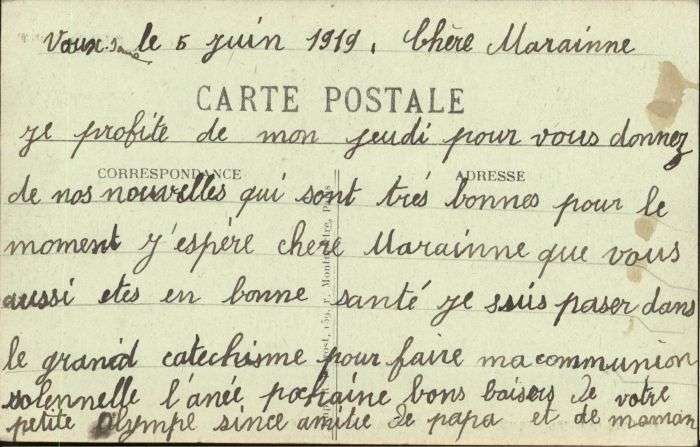 Vaux. le 5 juin 1919, Chère Marainne
CARTE POSTALE
je profite de mon jeudi pour vous donnez
CORRESPONDANCE
ADRESSE
de nos nouvelles qui sont trés bonnes pour le
moment j'espére chere Marainne que vous
aussi etes en bonne santé je suis paser dans
le grand catechisme pour faire ma communion
solennelle l'anée pochaine bons baisers de votre
petite Olympe since amitie de papa et de maman